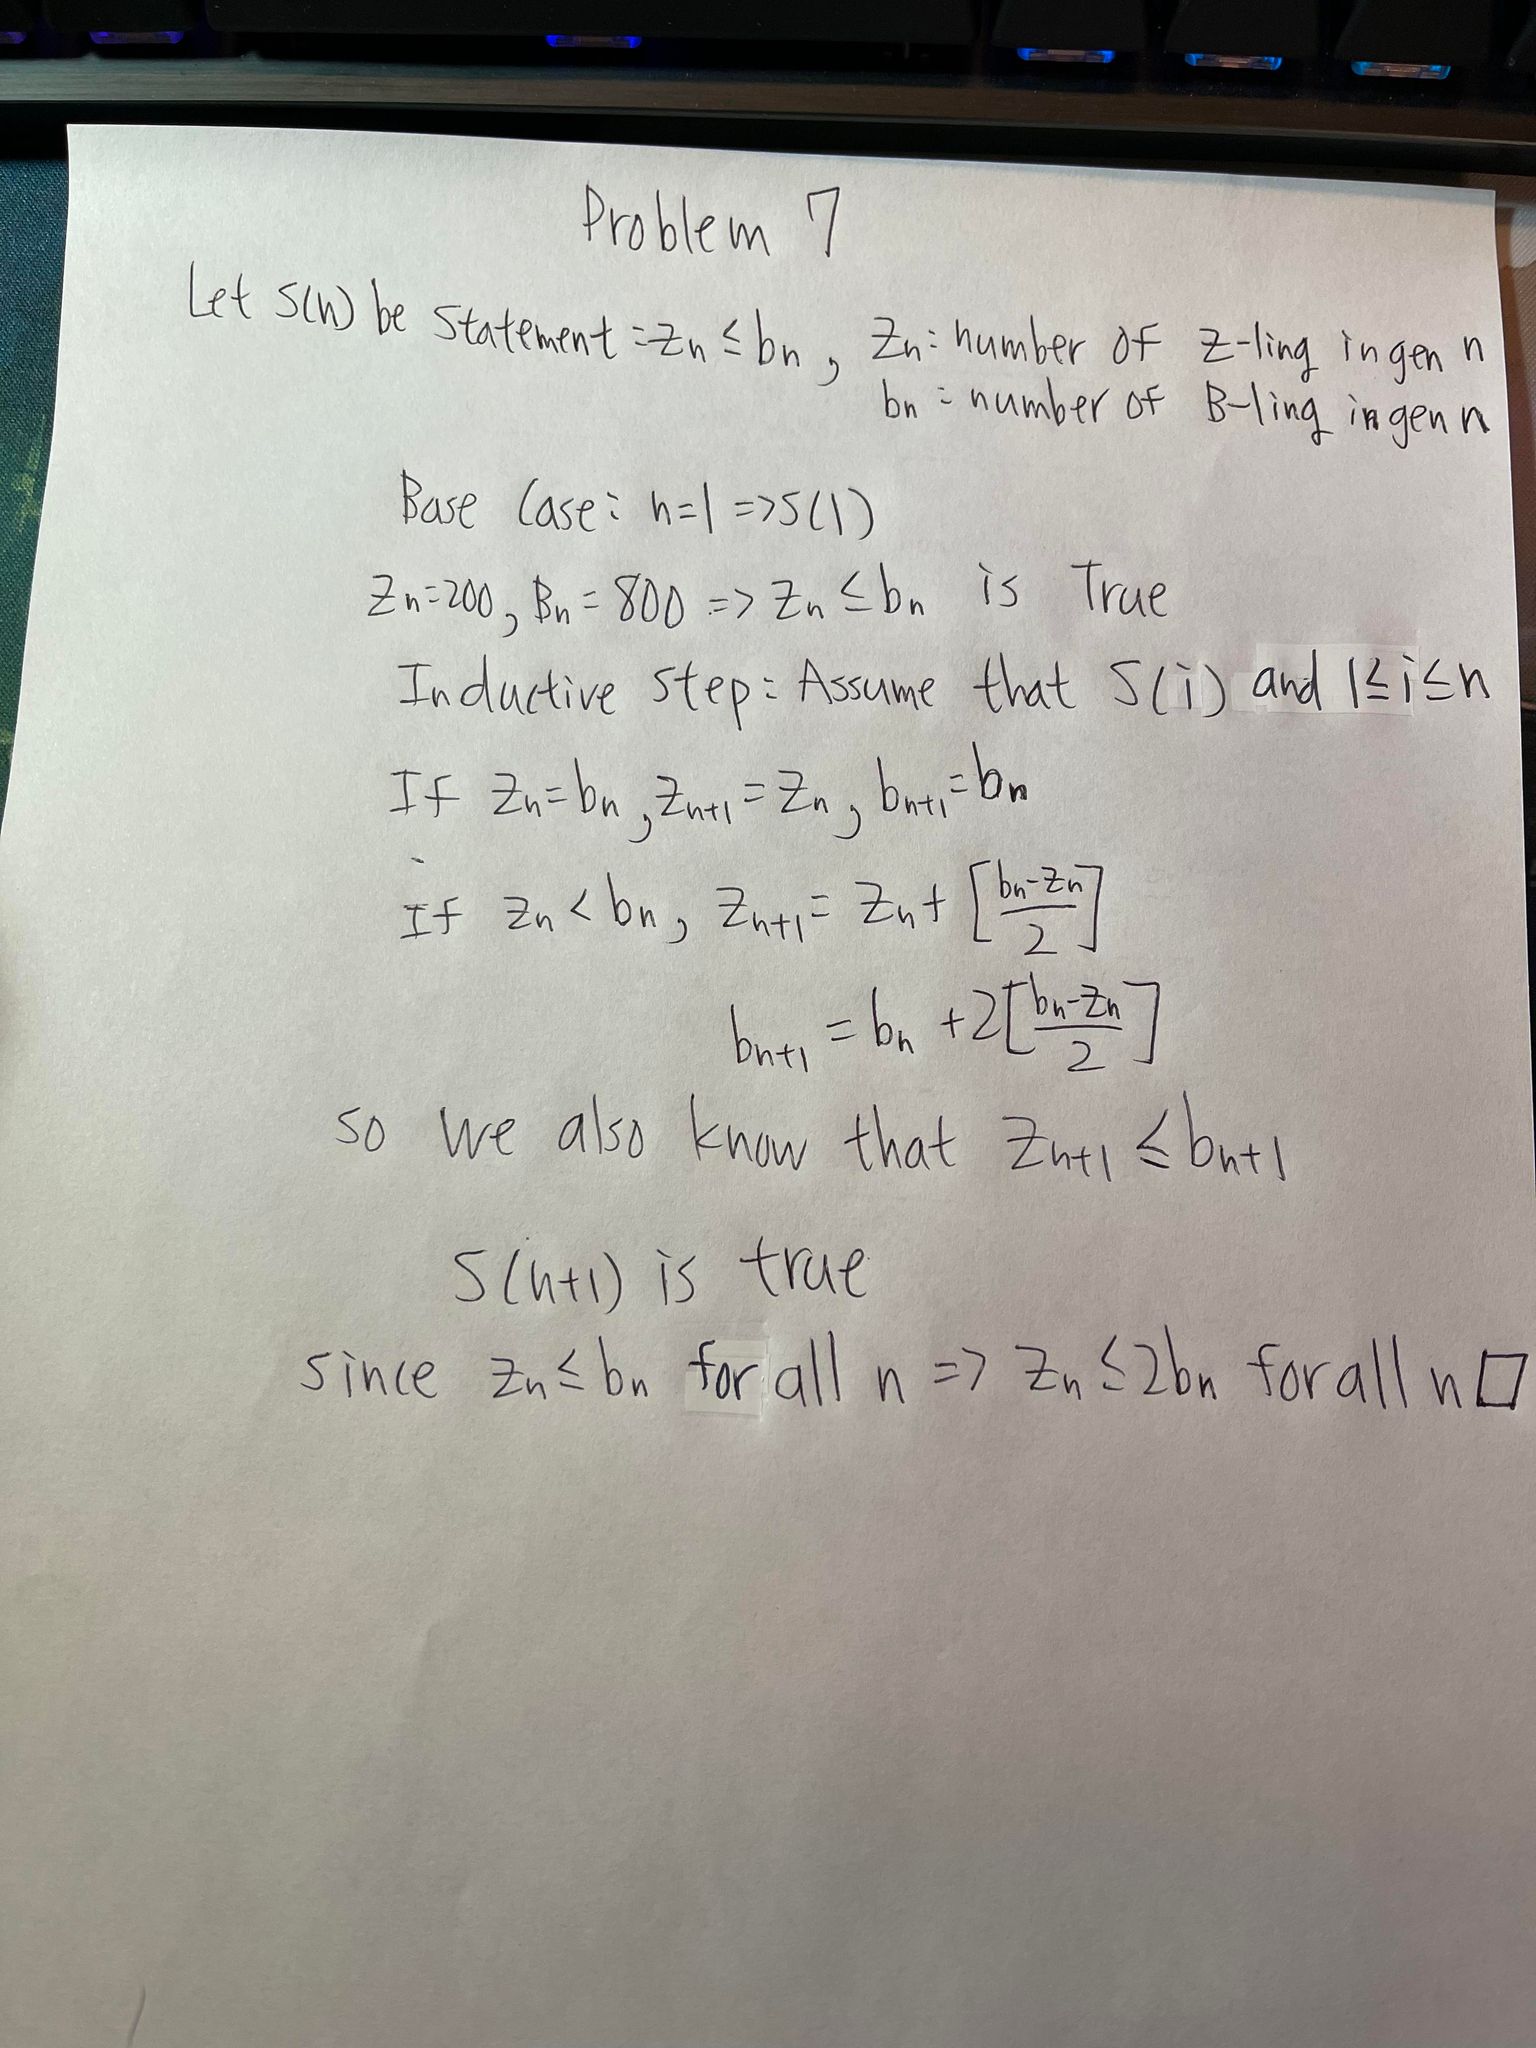 Problem 7
Let S(n) be statement = Zn ≤ bn, Zn: number of Z-ling in gen n
bn: number of B-ling in gen n
Base Case: n=1 => S(1)
Zn=200, Bn=800 => Zn ≤ bn is True
Inductive step: Assume that S(i) and 1≤i≤n
If Zn=bn, Zn+1=Zn, bn+1=bn
If Zn<bn, Zn+1= Zn+[bn-Zn/2]
bn+1=bn+2[bn-Zn/2]
so we also know that Zn+1 ≤ bn+1
S(n+1) is true
since Zn≤bn for all n => Zn≤2bn for all n □